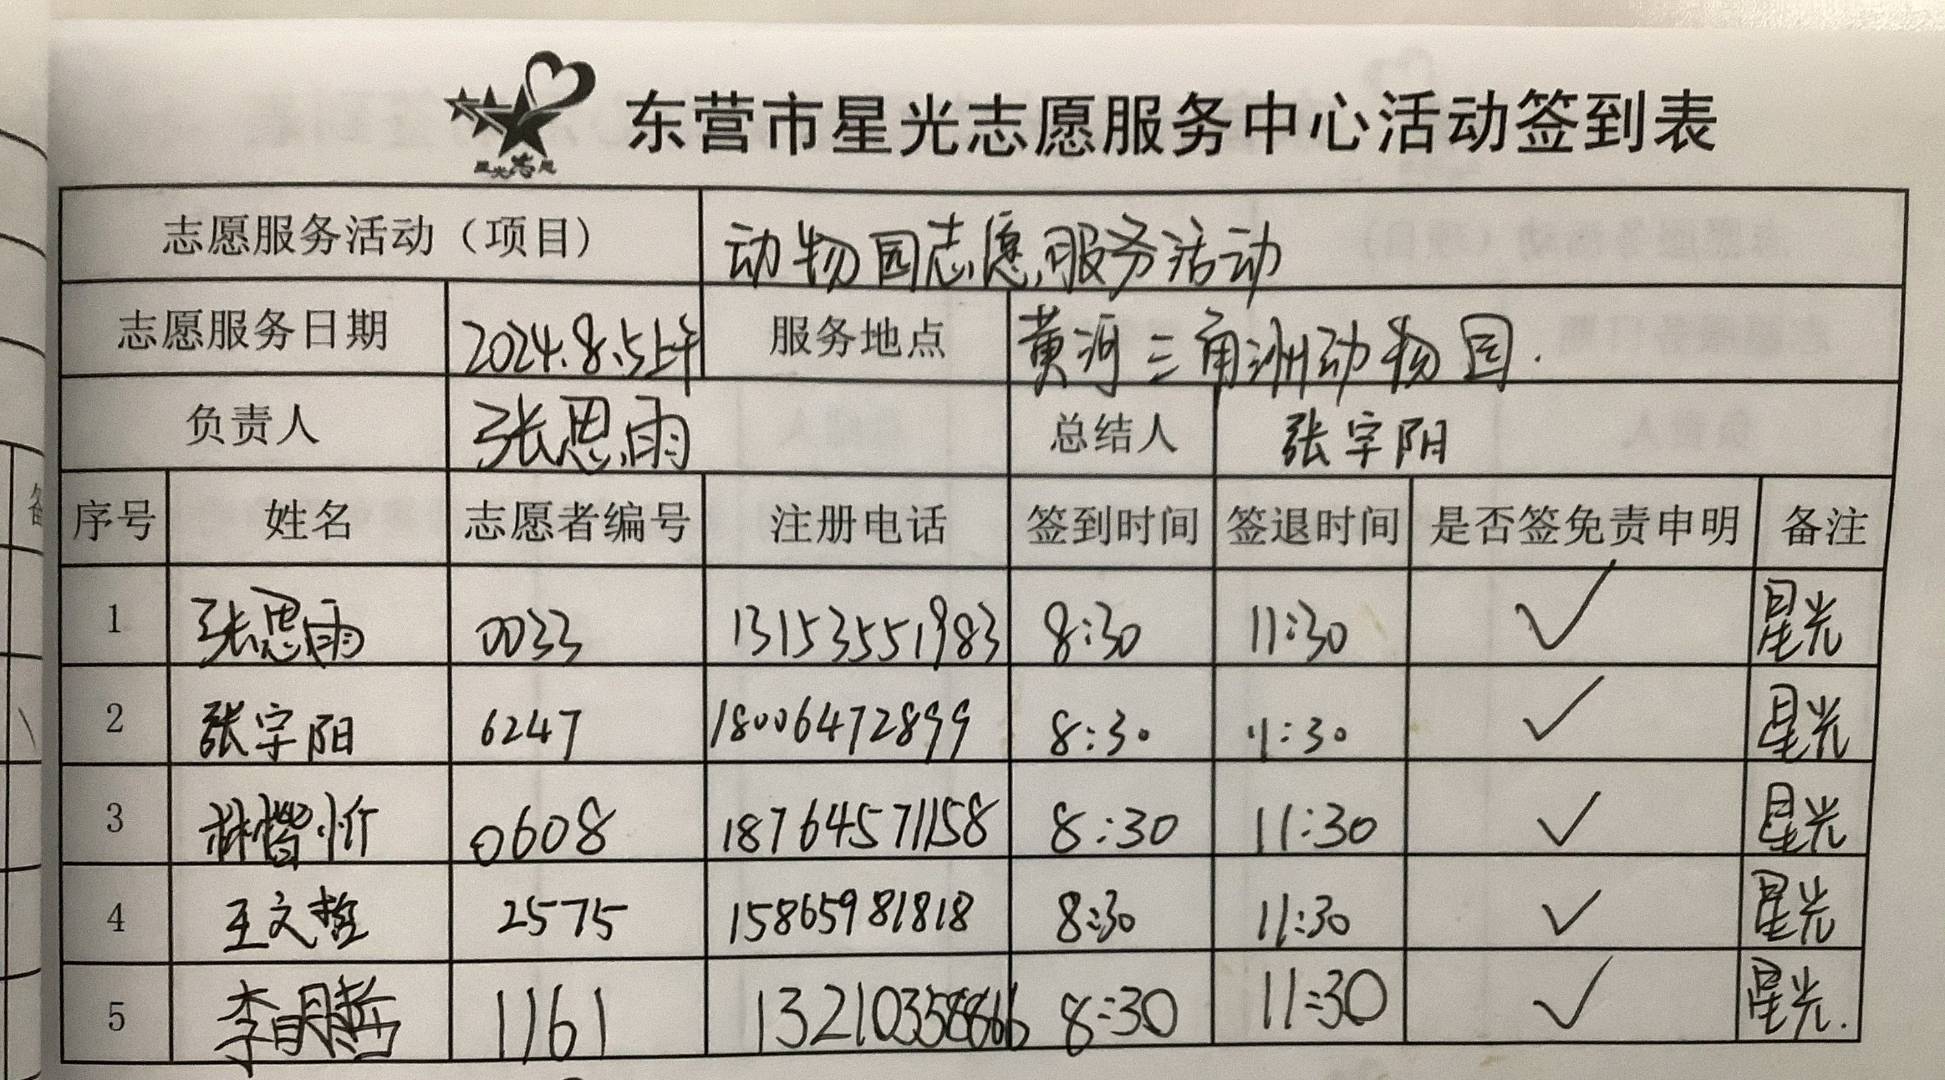 星光志愿
东营市星光志愿服务中心活动签到表
志愿服务活动（项目） 动物园志愿服务活动
志愿服务日期 2024.8.5上午 服务地点 黄河三角洲动物园.
负责人 张思雨 总结人 张宇阳
序号 姓名 志愿者编号 注册电话 签到时间 签退时间 是否签免责申明 备注
1 张思雨 0033 13153551983 8:30 11:30 ✓ 星光
2 张宇阳 6247 18006472899 8:30 11:30 ✓ 星光
3 0608 18764571158 8:30 11:30 ✓ 星光
4 王文哲 2575 15865981818 8:30 11:30 ✓ 星光
5 李明哲 1161 13210358866 8:30 11:30 ✓ 星光.